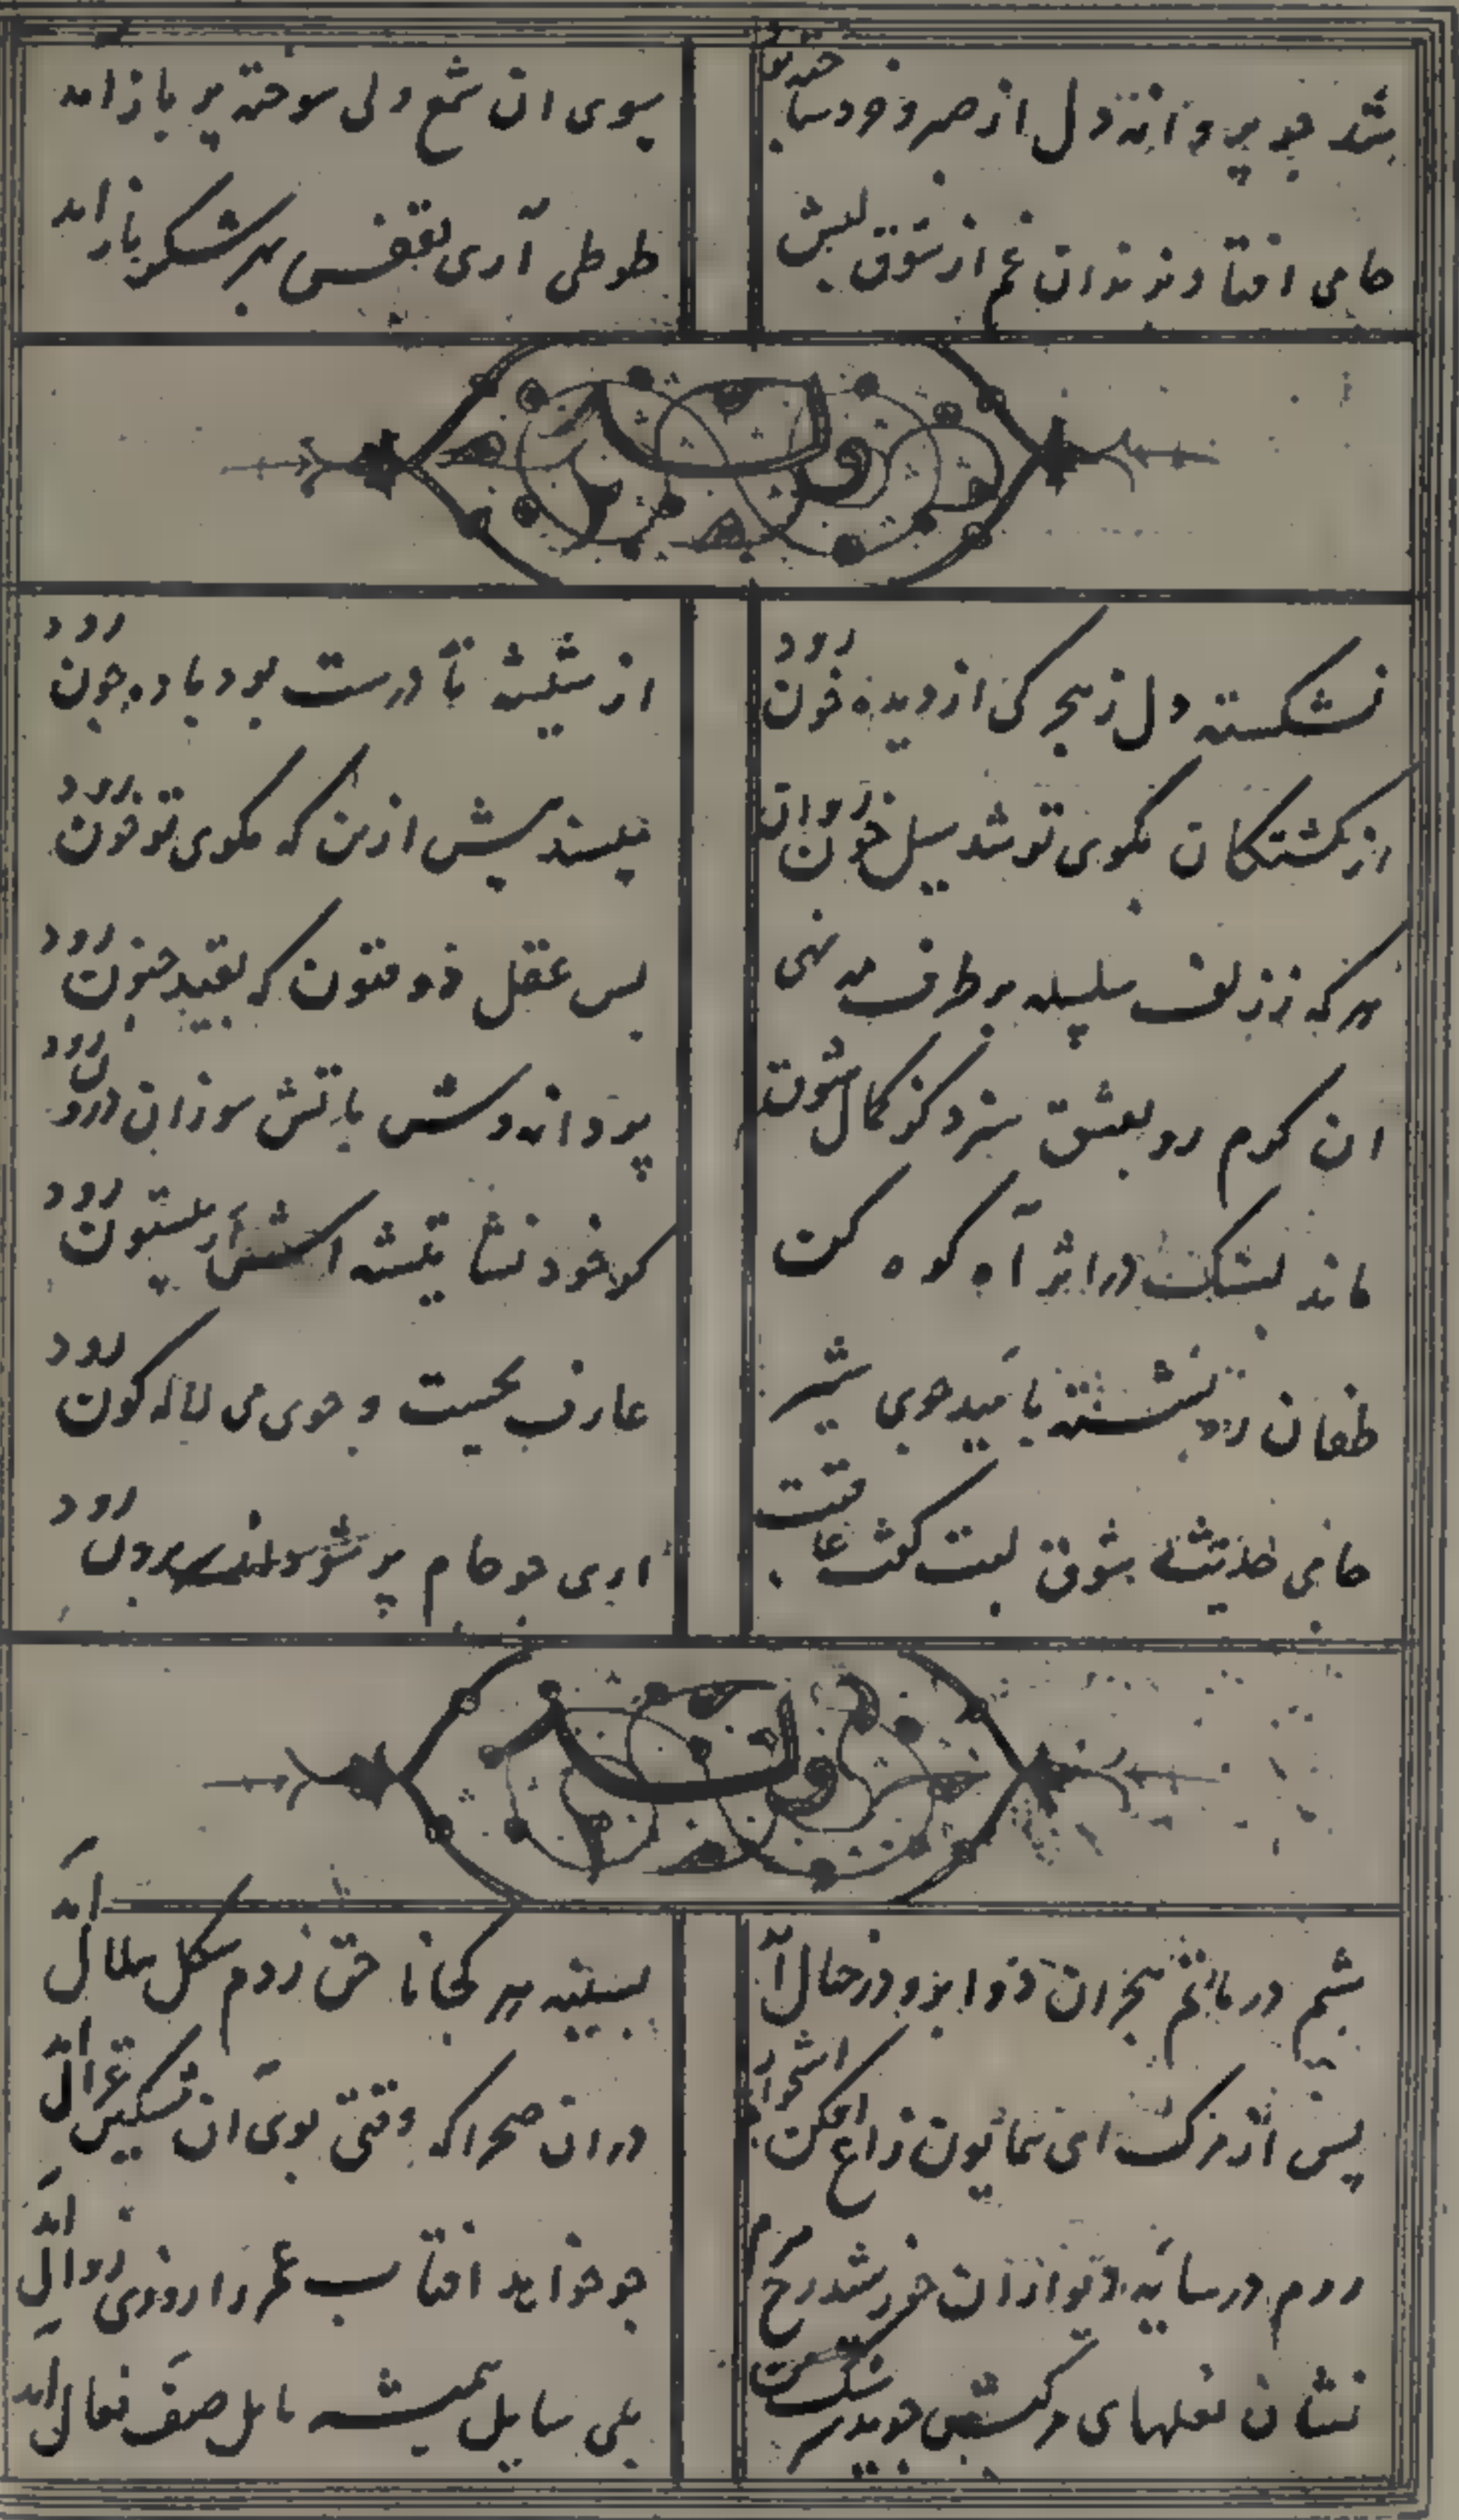 شد چو پروانه دل از صبر و خرد سا
سوی ان شمع ولی سوخته پر باز امد
جامی افتاد از شوق لبش
طوطی آری بقفس بهر شکر باز امد
نشکسته دل ز هجر کی از دیده خون رود
از شیشه تا درست بود باده چون رود
از کشتکان بکوی تو شد سیل خون روان
مپسند بیش ازین که بکوی تو خون رود
هر که ز زلف سلسله بر طرف مه نهی
بس عقل ذو فنون که بقید جنون رود
ان کرم رو بعشق سزد کز کمال شوق
پروانه وش باتش سوزان درون رود
ماند بسنک در اثر آه کوه کن
کو خود نشا تیشه اش از بیستون رود
طفلان ره نشسته بامید جوی شیر
عارف بجست و جوی می لاله کون رود
جامی حدیث بشوق لبت عاقبت
اری چو جام پر شو رود
شبم در ماتم هجران ذو ابرو در خیال آمد
بسینه هر کجا ناخن زدم شکل هلال امد
پس از مرکت ای همایون زاغ
در ان صحرا که وقتی بوی ان مشکین غزال امد
روم در سایه از ان خورشید رخ میرم
چو خواهد افتاب عمر را روزی زوال امد
نشان نعلهای مرکبش جوید سرشک من
بلی سایل همیشه مایل صف نعال امد